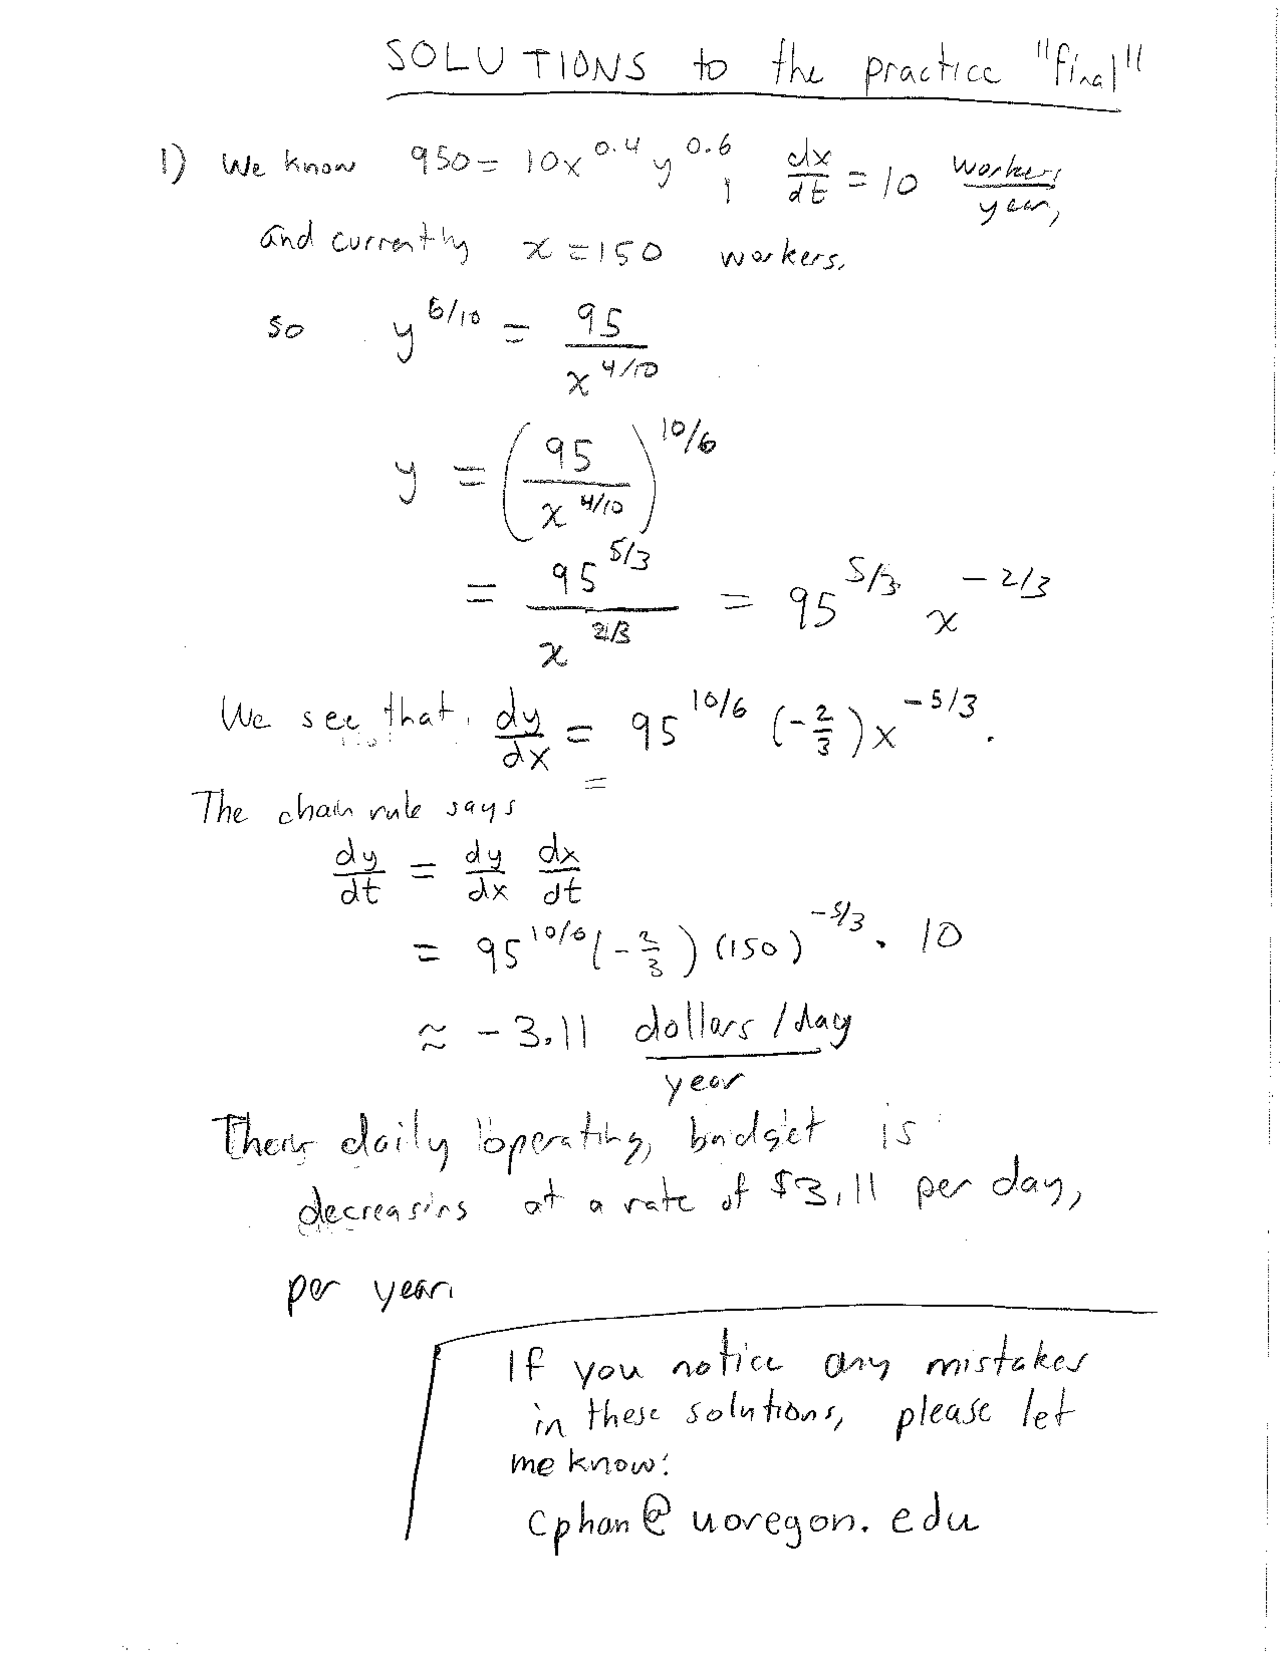 SOLUTIONS to the practice "final"
1) We know 950 = 10x^0.4 y^0.6, dx/dt = 10 workers/year,
and currently x = 150 workers.
so y^6/10 = 95/x^4/10
y = (95/x^4/10)^10/6
= 95^5/3/x^2/3 = 95^5/3 x^-2/3
We see that dy/dx = 95^10/6 (-2/3)x^-5/3.
=
The chain rule says
dy/dt = dy/dx dx/dt
= 95^10/6 (-2/3)(150)^-5/3 · 10
≈ -3.11 dollars/day/year
Their daily operating budget is
decreasing at a rate of $3.11 per day,
per year.
If you notice any mistakes
in these solutions, please let
me know:
cphan@uoregon.edu